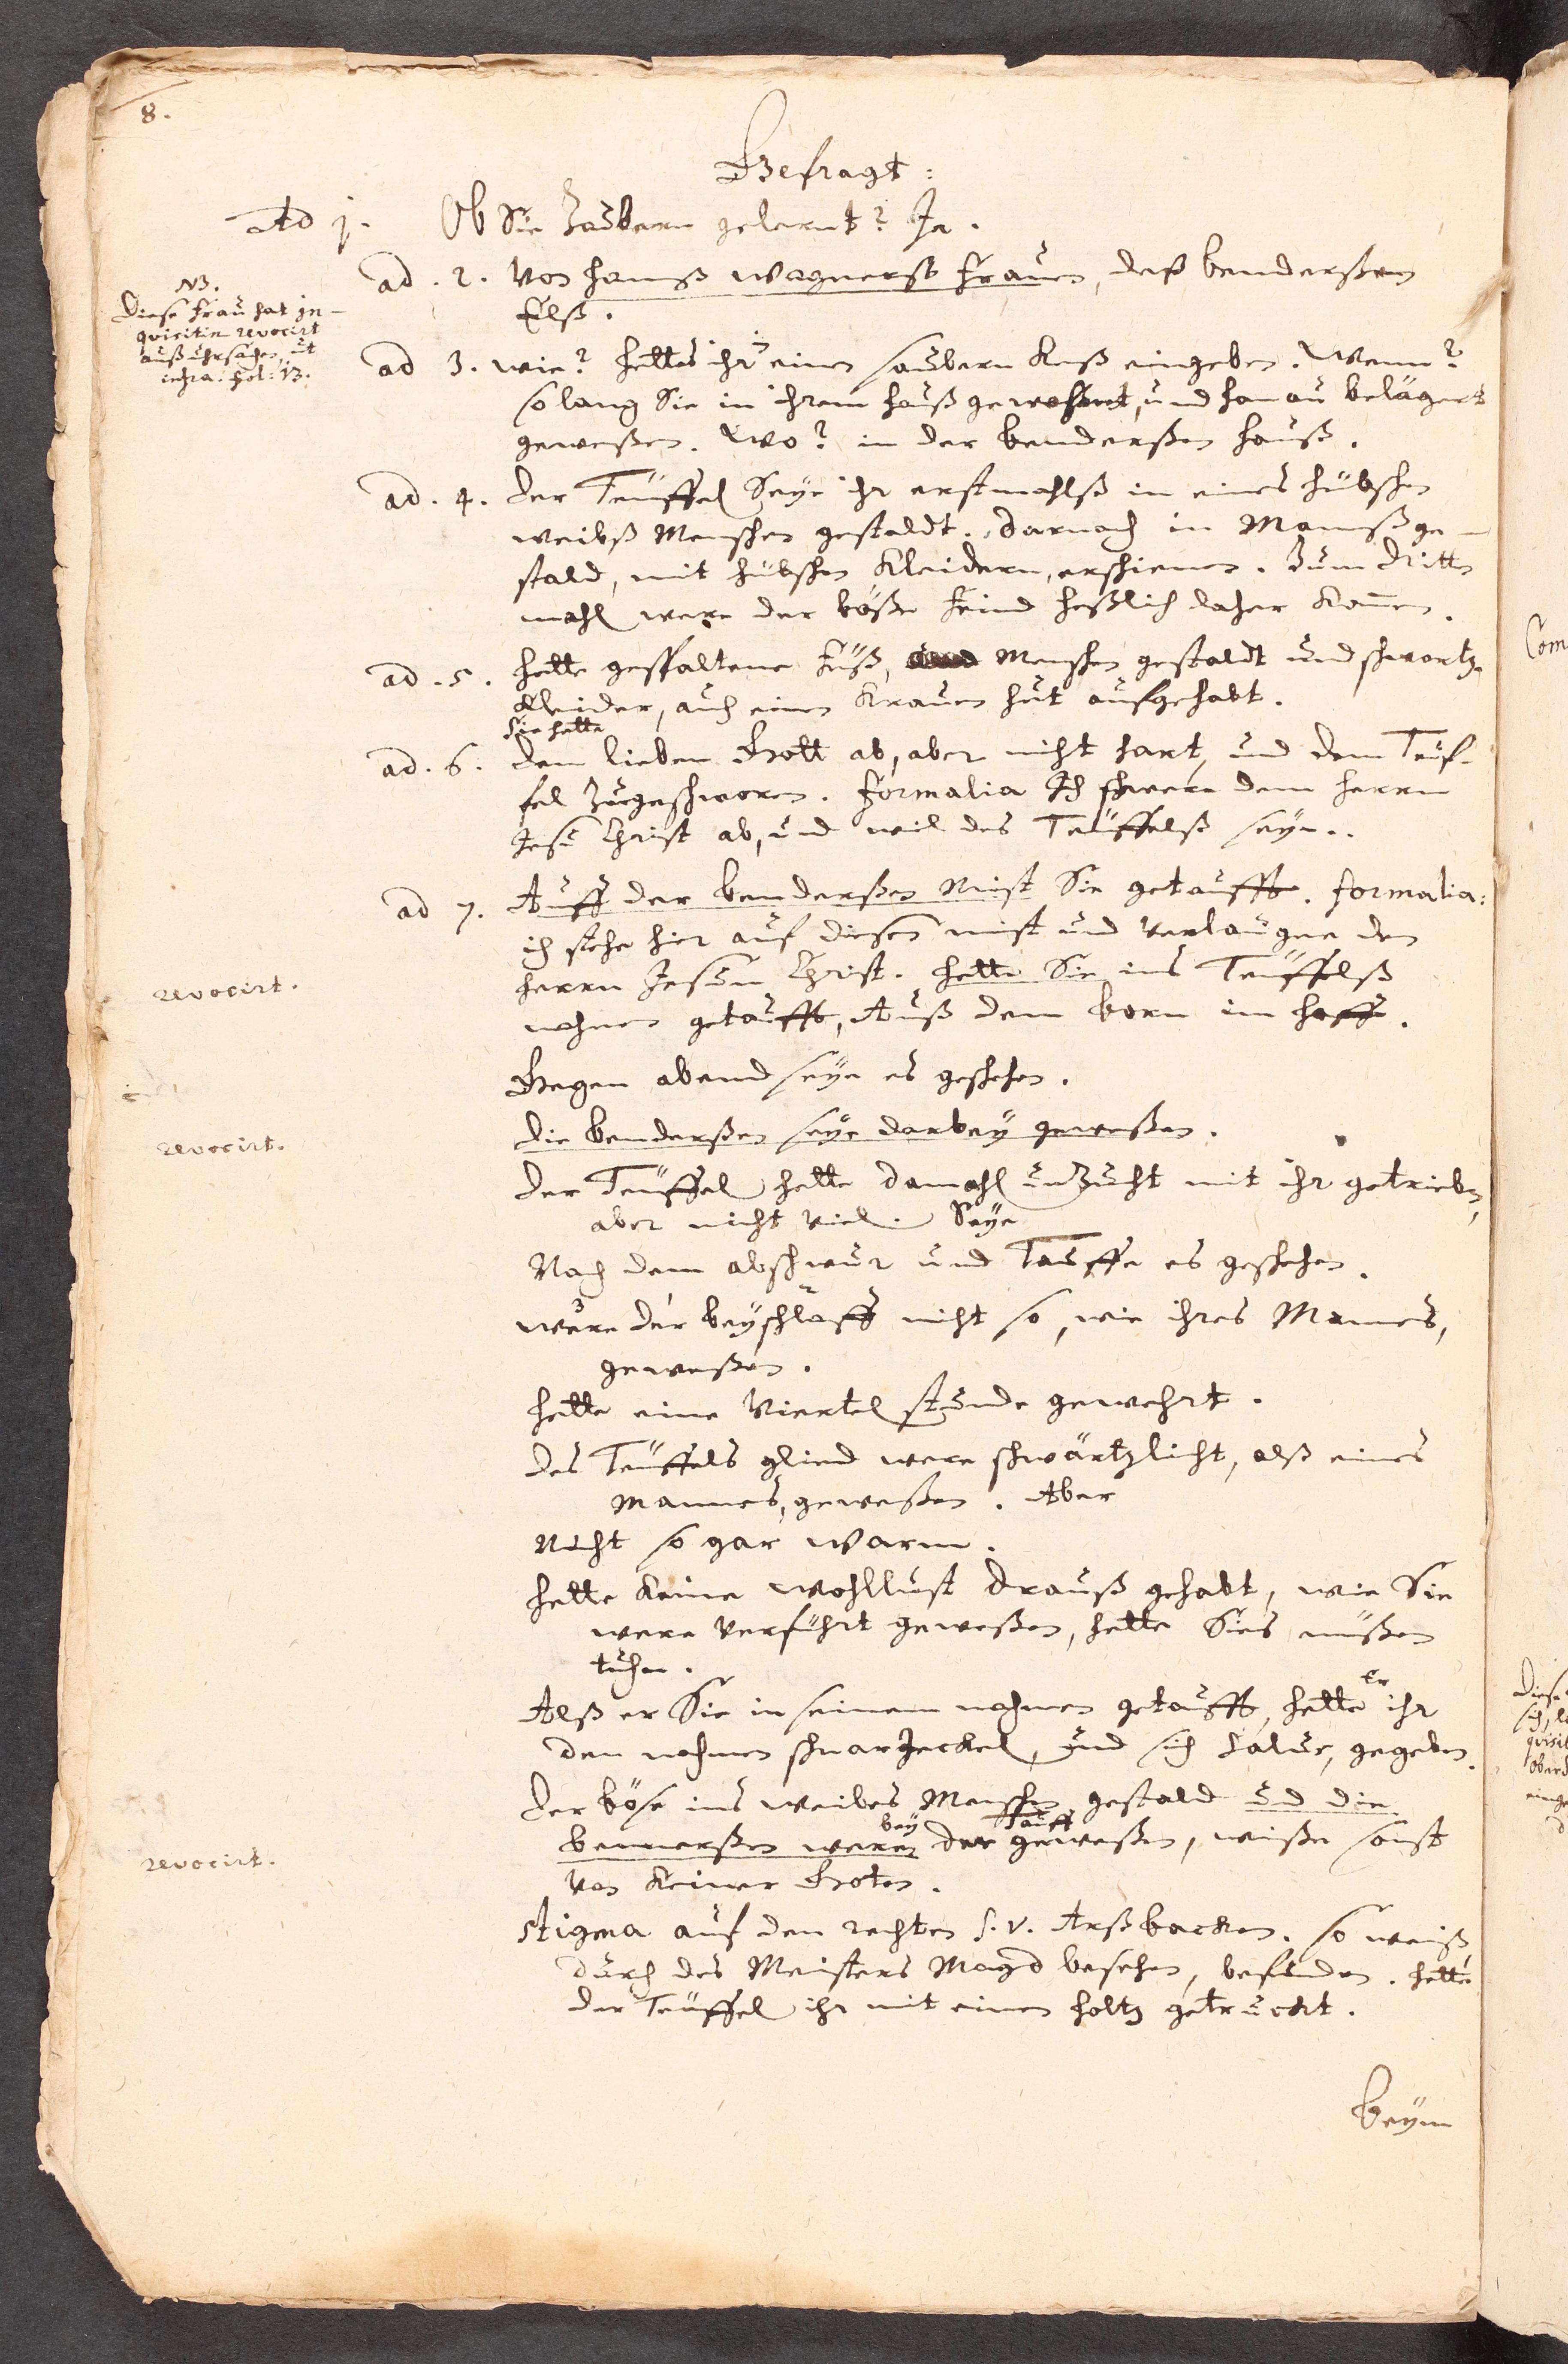 8.
Befragt:
Ad j. Ob Sie Zaubern gelernt? Ja.
ad. 2. Von Hanß Wagnerß Frauen, deß benderßen
Elß.
NB.
Diese Frau hat In-
qvisitin revocirt
auß uhrsachen, ut
infra. fol: 13.
ad 3. wie? hettes ihr in einen saubern Kuß eingeben. Wenn?
so lang Sie in ihrem Hauß gewohnt, und Hanau belägert
geweßen. Wo? in der benderßen Hauß.
ad. 4. der Teuffel Seye ihr erstmahlß in eines hübschen
weibß Menschen gestaldt. darnach in Mannß ge-
stald, mit hübschen Kleidern, erschienen. Zum dritten
mahl were der böße Feind heßlich daher kommen.
ad. 5. hette gespaltene Füß, Menschen gestaldt und schwartze
Kleider, auch einen Krauen hut aufgehabt.
Sie hette
ad. 6. dem lieben Gott ab, aber nicht hart, und dem Teuf-
fel Zugeschworen. formalia Ich schwere dem Herrn
Jesu Christ ab, und wil des Teuffelß seyn..
ad 7. Auff der benderßen Mist Sie getaufft. formalia:
ich stehe hier auf diesen mist und verlaugne den
Herrn Jesum Christ. hette Sie ins Teuffelß
revocirt.
nahmen getaufft, Auß dem born im hoffe.
Gegen abend seye es geschehen.
die benderßen seye darbey geweßen.
revocirt.
der Teuffel hette damahl unzucht mit ihr getrieben,
aber nicht viel. Seye
Nach dem abschwur und Tauffe es geschehen.
were der beyschlaff nicht so, wie ihres Mannes,
geweßen.
hette eine Viertel stunde gewehrt.
des Teuffels glied were schwärtzlicht, alß eines
Mannes, geweßen. Aber
Nicht so gar warm.
hette keine wohllust drauß gehabt, wie Sie
were verführt geweßen, hette Sies müßen
tuhn.
Alß er Sie in seinem nahmen getaufft, hette er ihr
den nahmen schwarzeckel, und sich, gegeben.
der böse ins weibes Menschen gestald und die
bennerßen weren bey der Tauff geweßen, wiße sonst
revocirt.
von keiner Goten.
stigma auf den rechten s. v. Arßbacken. so weiß
durch des Meisters Magd besehen, befunden. hette
der Teuffel ihr mit einen holtz getruckt.
beym